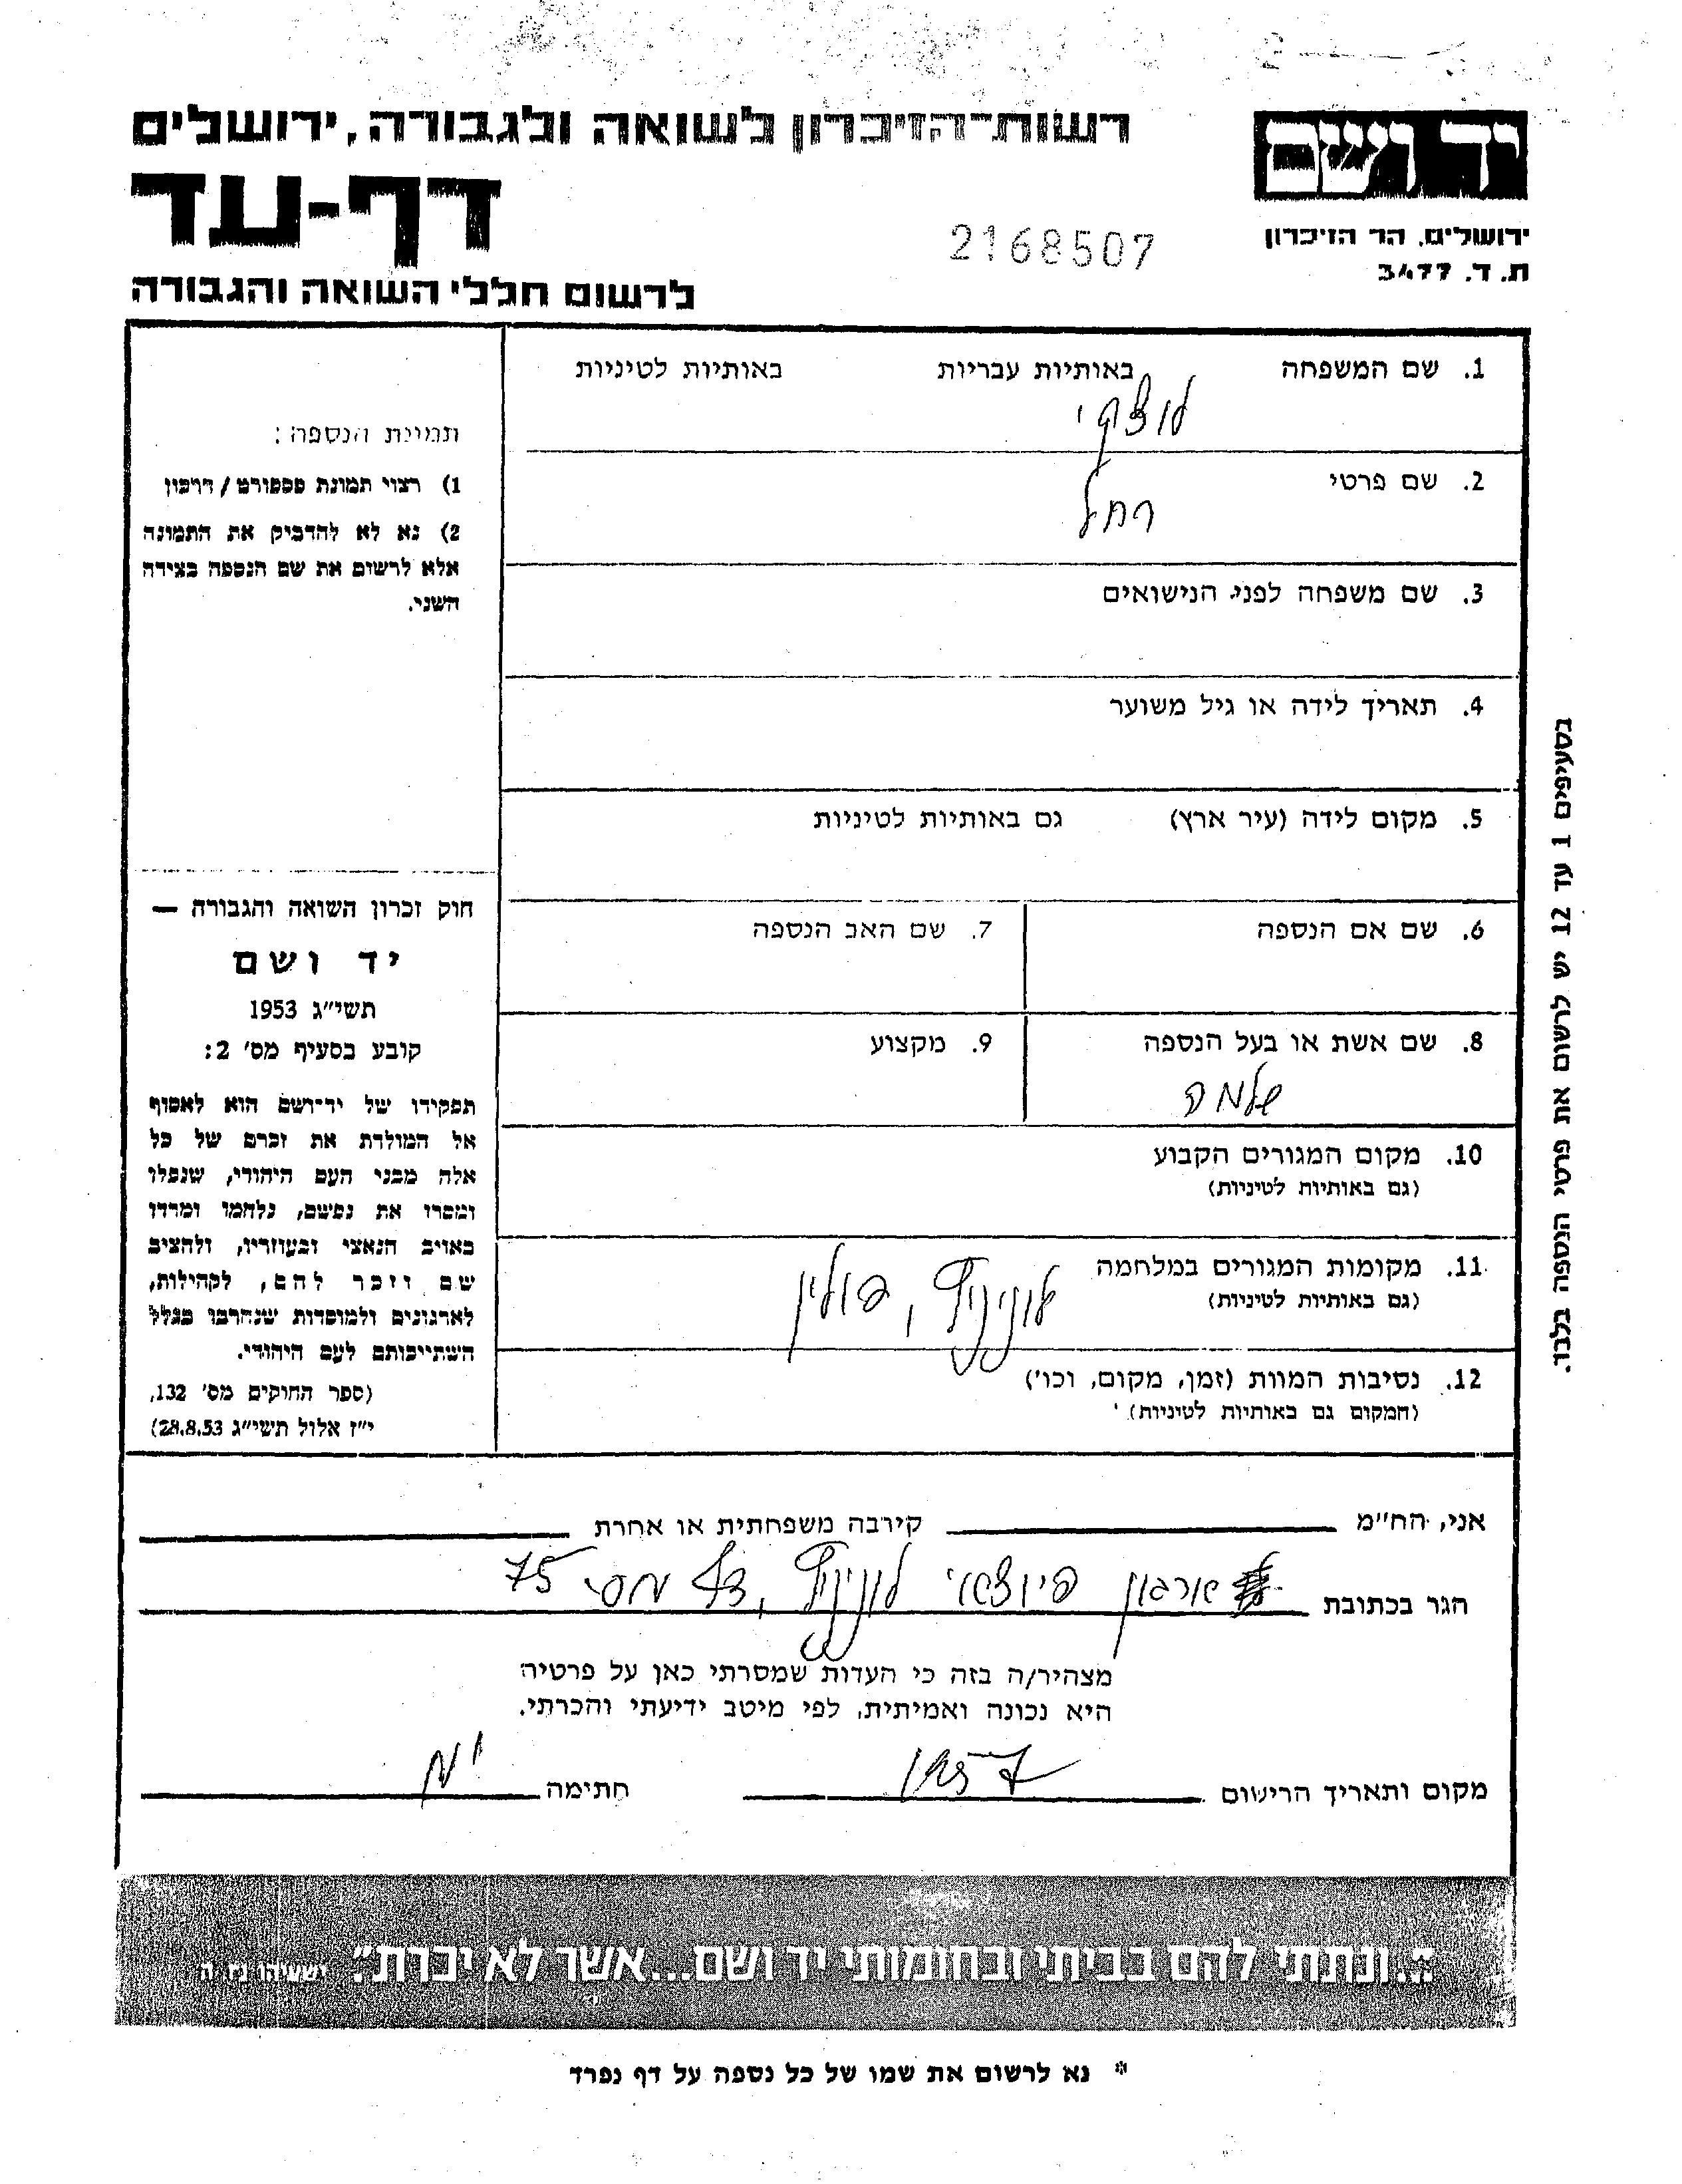 רשות־הזיכרון לשואה ולגבורה, ירושלים
יד ושם
דף-עד
2168507
ירושלים, הר הזיכרון
ת. ד. 3477
לרשום חללי השואה והגבורה
1. שם המשפחה באותיות עבריות באותיות לטיניות
לוצקי
2. שם פרטי
רחל
3. שם משפחה לפני הנישואים
4. תאריך לידה או גיל משוער
5. מקום לידה (עיר ארץ) גם באותיות לטיניות
6. שם אם הנספה 7. שם האב הנספה
8. שם אשת או בעל הנספה 9. מקצוע
שלמה
10. מקום המגורים הקבוע
(גם באותיות לטיניות)
11. מקומות המגורים במלחמה
(גם באותיות לטיניות)
לונינץ, פולין
12. נסיבות המוות (זמן, מקום, וכו')
(המקום גם באותיות לטיניות)
תמונת הנספה:
1) רצוי תמונת פספורט/דרכון
2) נא לא להדביק את התמונה
אלא לרשום את שם הנספה בצידה
השני.
חוק זכרון השואה והגבורה —
יד ושם
תשי״ג 1953
קובע בסעיף מס' 2:
תפקידו של יד־ושם הוא לאסוף
אל המולדת את זכרם של כל
אלה מבני העם היהודי, שנפלו
ומסרו את נפשם, נלחמו ומרדו
באויב הנאצי ובעוזריו, ולהציב
שם וזכר להם, לקהילות,
לארגונים ולמוסדות שנחרבו בגלל
השתייכותם לעם היהודי.
(ספר החוקים מס' 132,
י״ז אלול תשי״ג 28.8.53)
בסעיפים 1 עד 12 יש לרשום את פרטי הנספה בלבד.
אני, הח״מ קירבה משפחתית או אחרת
הגר בכתובת ארגון יוצאי לונינץ, דף מס. 75
מצהיר/ה בזה כי העדות שמסרתי כאן על פרטיה
היא נכונה ואמיתית, לפי מיטב ידיעתי והכרתי.
מקום ותאריך הרישום 1957 חתימה
״...ונתתי להם בביתי ובחומותי יד ושם...אשר לא יכרת״. ישעיהו נו ה
* נא לרשום את שמו של כל נספה על דף נפרד